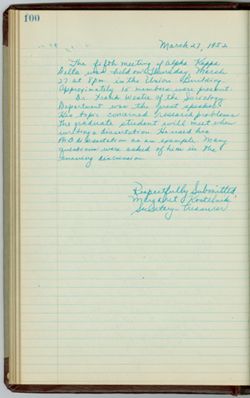 100
March 27, 1952
The fifth meeting of Alpha Kappa
Delta was held on Thursday, March
27 at 8pm in the Union Building.
Approximately 15 members were present.
Dr. Frank Westie of the Sociology
Department was the guest speaker.
His topic concerned research problems
the graduate student will meet when
writing a dissertation. He used his
PhD dissertation as an example. Many
questions were asked of him in the
following discussion.
Respectfully Submitted,
Margaret
Secretary-Treasurer